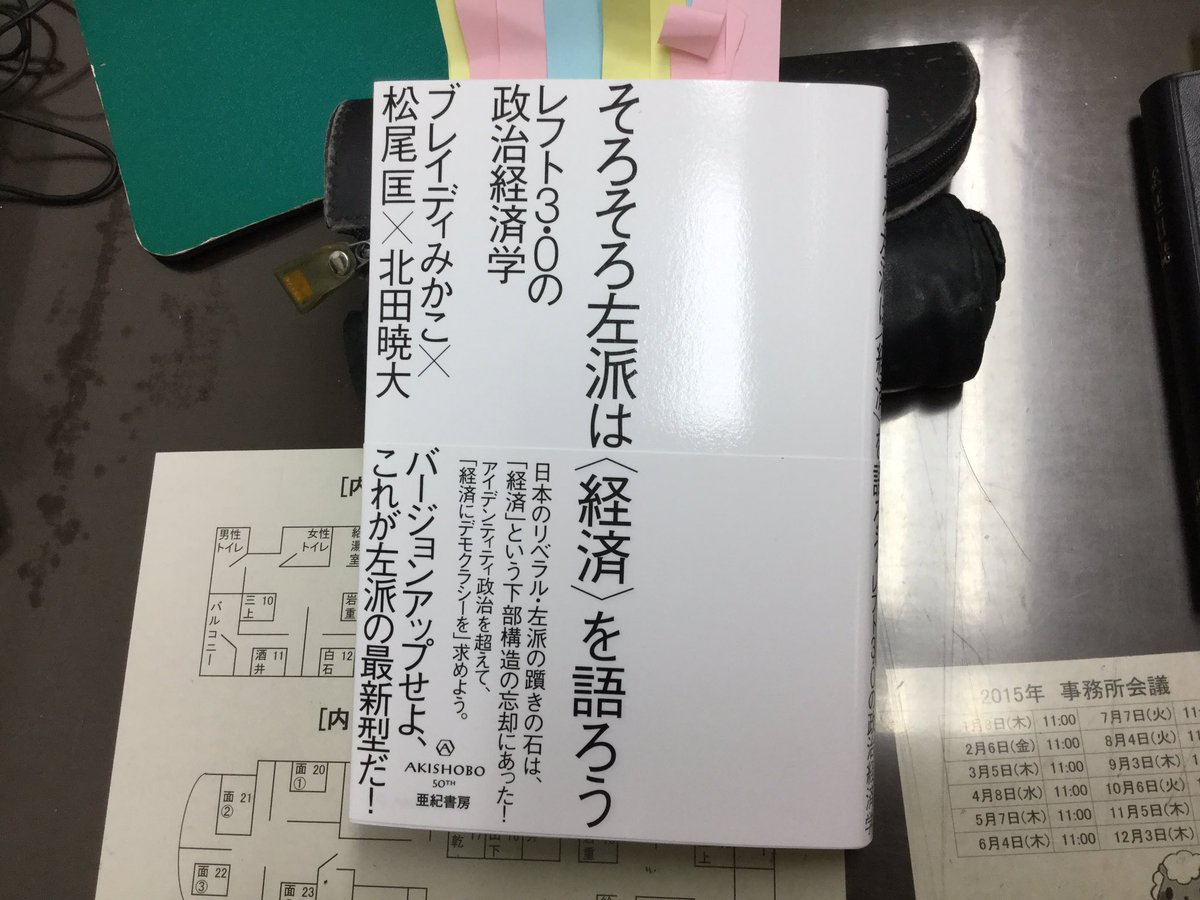 そろそろ左派は〈経済〉を語ろう
レフト3.0の
政治経済学
ブレイディみかこ×
松尾匡×北田暁大
日本のリベラル・左派の躓きの石は、
「経済」という下部構造の忘却にあった!
アイデンティティ政治を超えて、
「経済にデモクラシーを」求めよう。
バージョンアップせよ、
これが左派の最新型だ!
AKISHOBO
50TH
亜紀書房
[内
男性
トイレ
女性
トイレ
給
湯
室
バルコニー
三 10
上
岩
重
酒 11
井
白 12
石
[内
面 20
①
面 21
②
面 22
③
面 23
乾
下
岩
重
上
2015年 事務所会議
1月8日(木) 11:00 7月7日(火) 11
2月6日(金) 11:00 8月4日(火)
3月5日(木) 11:00 9月3日(木)
4月8日(水) 11:00 10月6日(火)
5月7日(木) 11:00 11月5日(木)
6月4日(木) 11:00 12月3日(木)